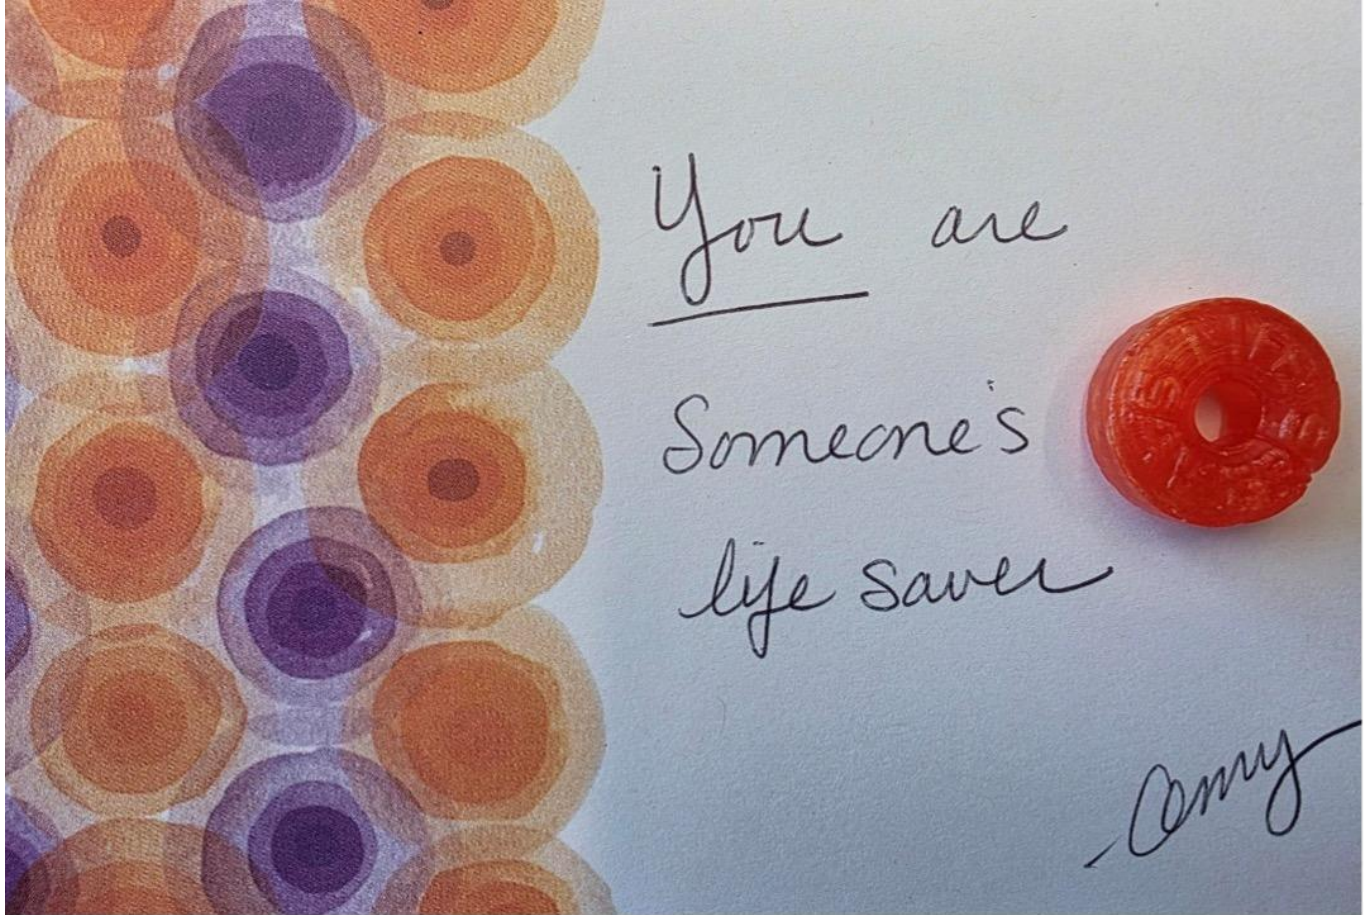 You are
Someone's
life saver
Amy